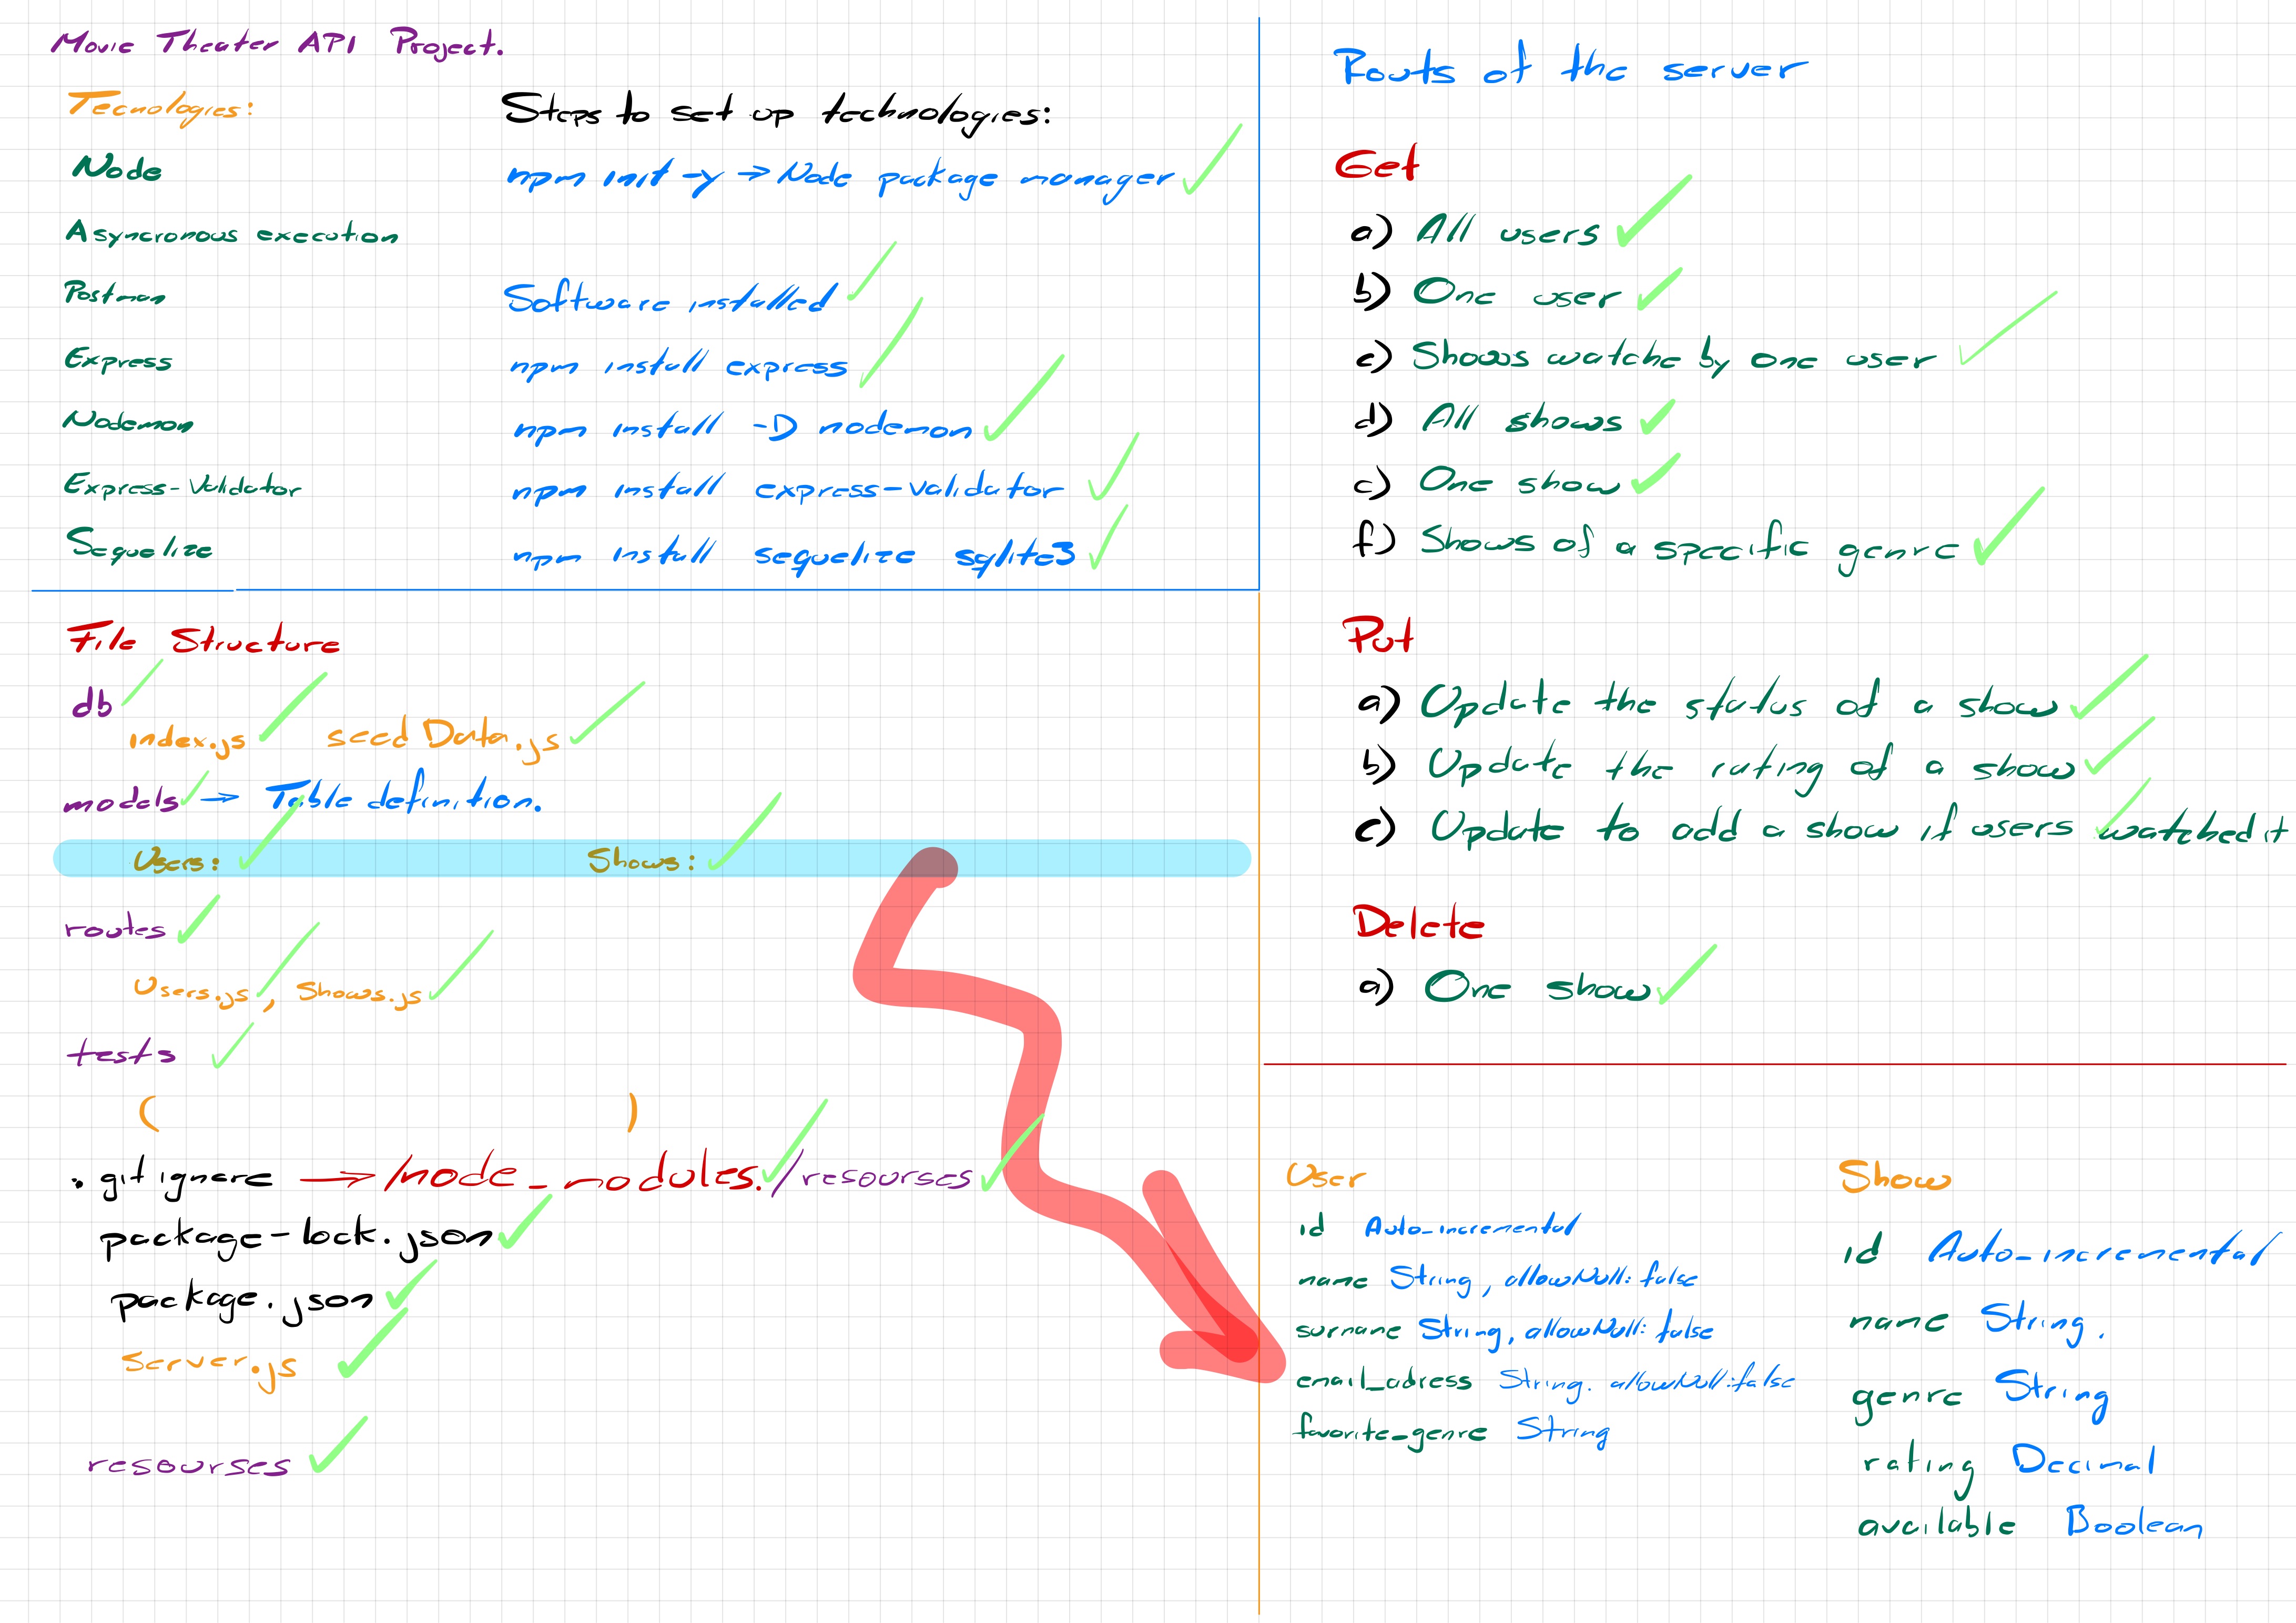 Movie Theater API Project.
Tecnologies:
Steps to set up technologies:
Node
npm init -y → Node package manager ✓
Asyncronous execution
Postman
Software installed ✓
Express
npm install express ✓
Nodemon
npm install -D nodemon ✓
Express-Validator
npm install express-validator ✓
Sequelize
npm install sequelize sqlite3 ✓
File Structure
db ✓
index.js ✓ seed Data.js ✓
models ✓ → Table definition.
Users: ✓ Shows: ✓
routes ✓
Users.js ✓, Shows.js ✓
tests ✓
( )
. git ignare → /node_modules. ✓ /resourses ✓
package-lock.json ✓
package.json ✓
server.js ✓
resourses ✓
Routs of the server
Get
a) All users ✓
b) One user ✓
c) Shows watche by one user ✓
d) All shows ✓
e) One show ✓
f) Shows of a specific genre ✓
Put
a) Update the status of a show ✓
b) Update the rating of a show ✓
c) Update to add a show if users watched it ✓
Delete
a) One show ✓
User
id Auto-incremental
name String, allowNull: false
surname String, allowNull: false
email_adress String. allowNull:false
favorite_genre String
Show
id Auto-incremental
name String.
genre String
rating Decimal
available Boolean